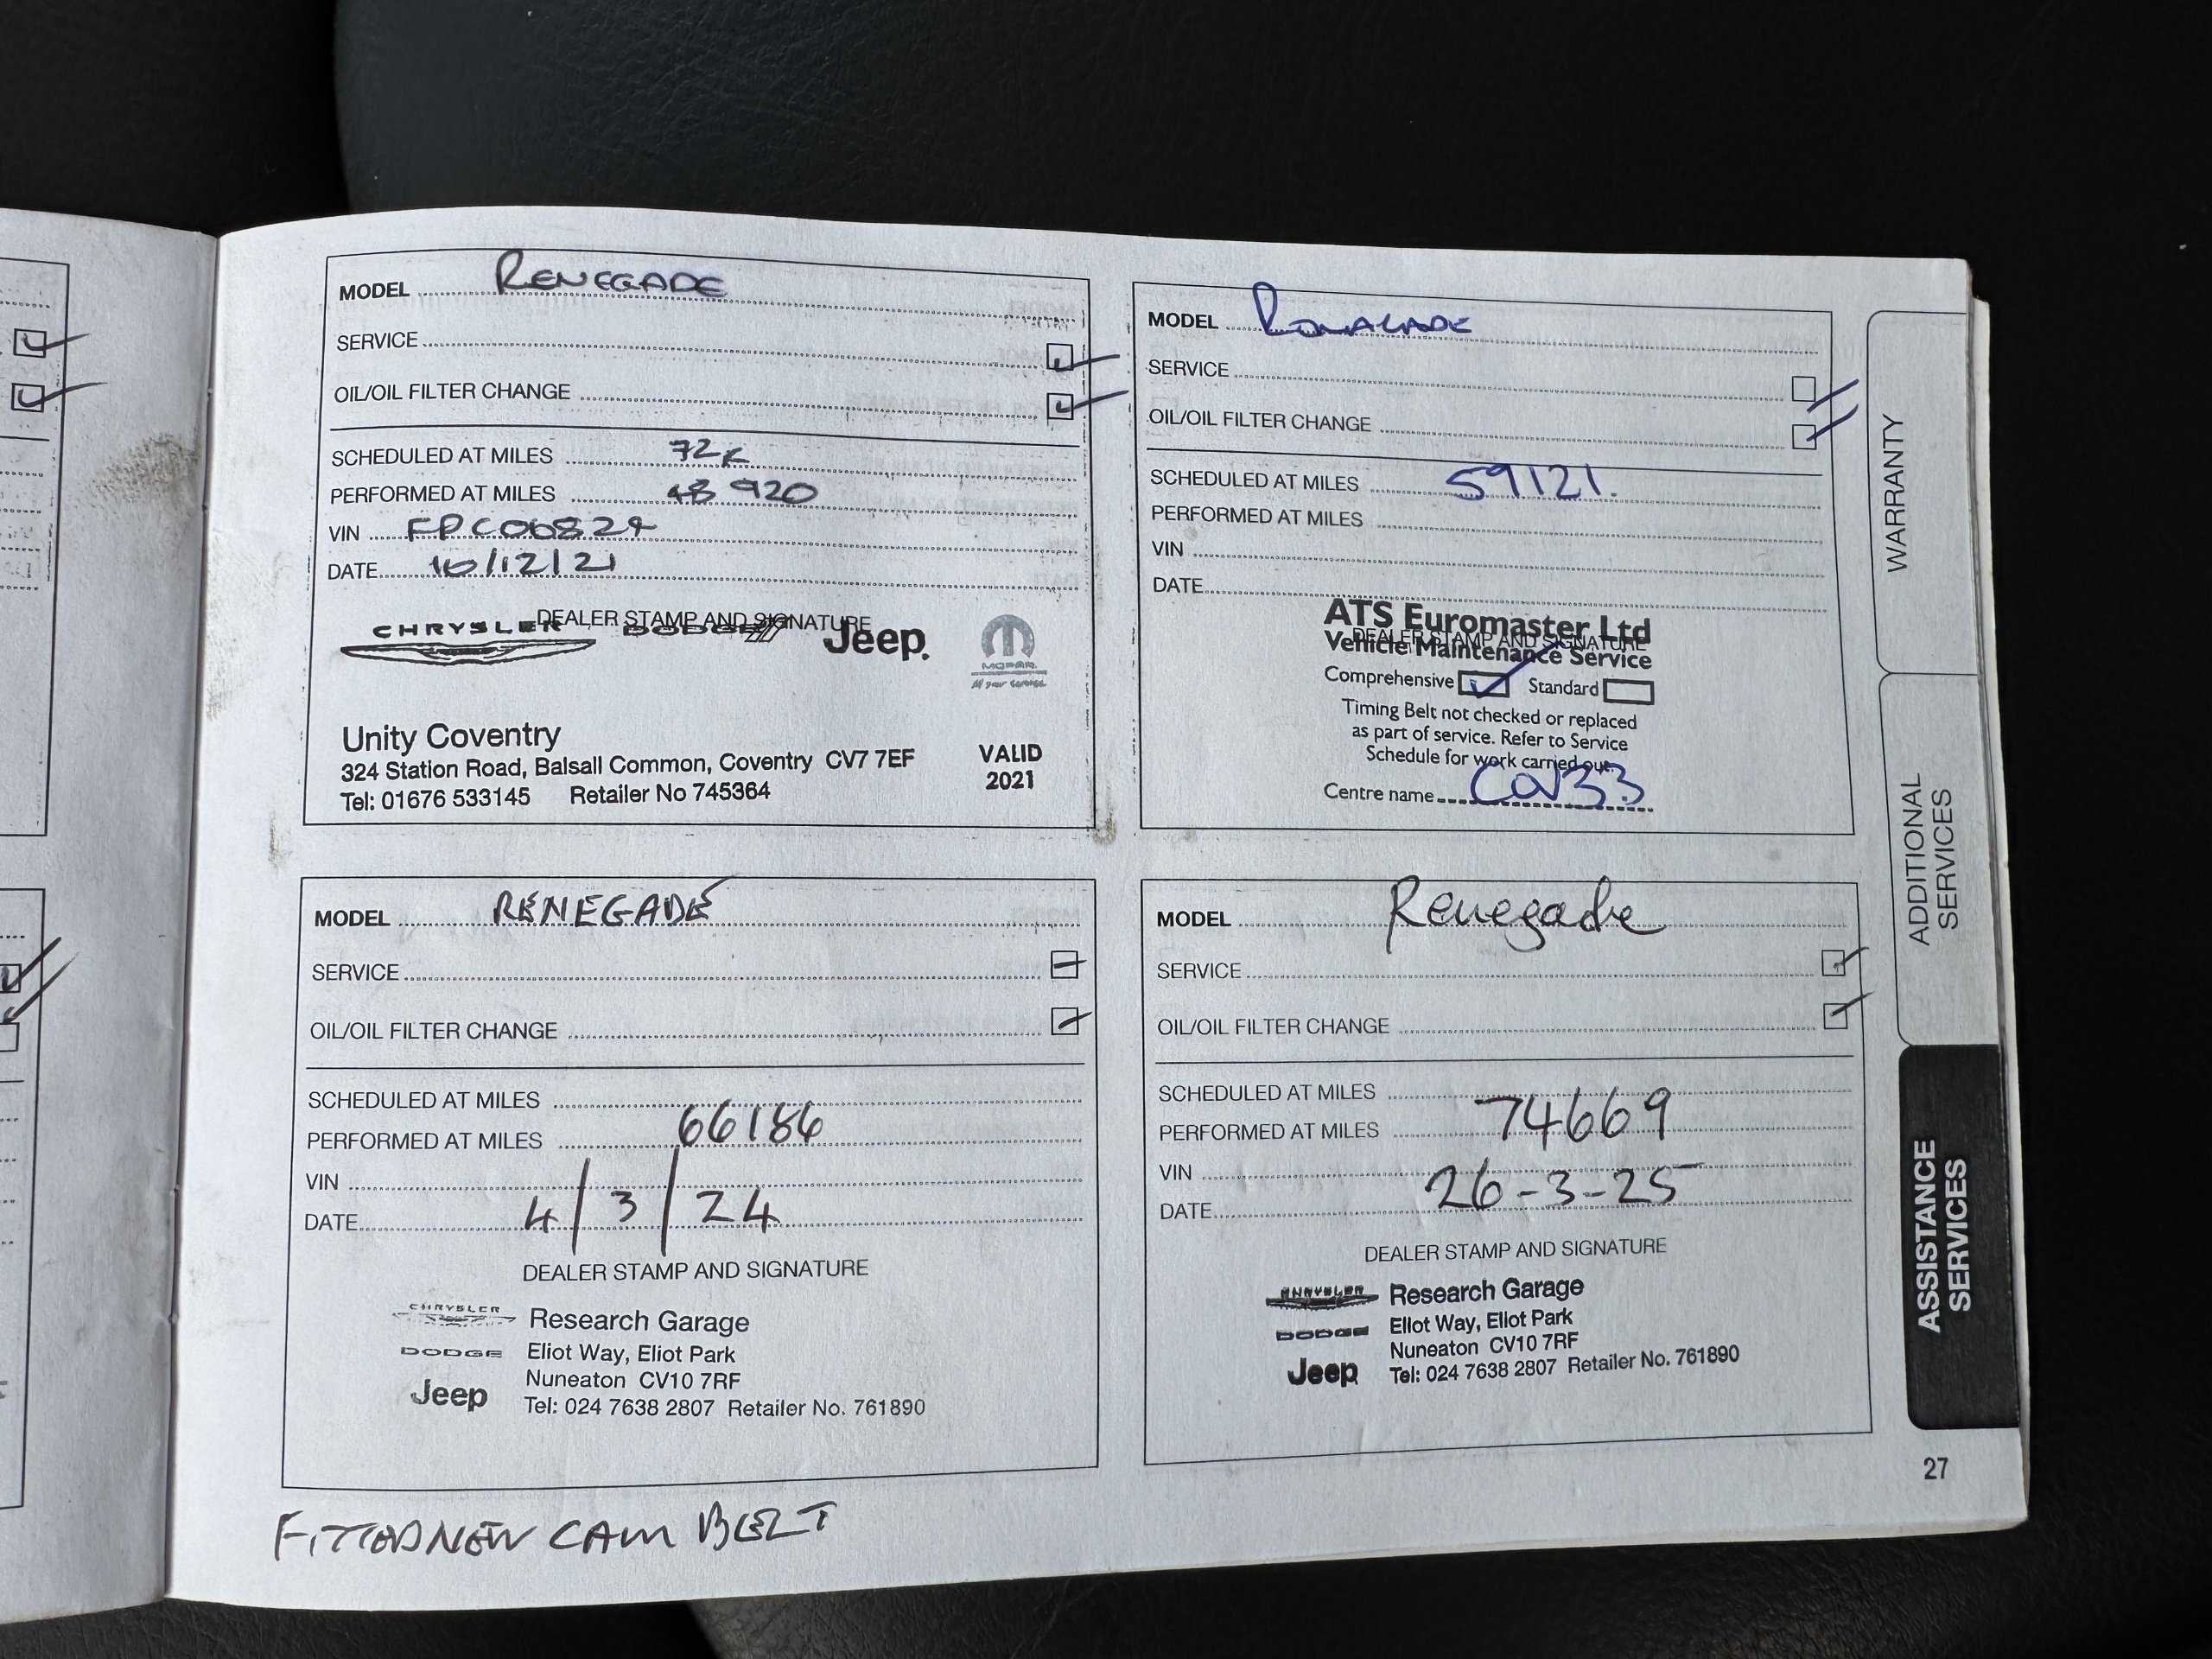 MODEL RENEGADE
SERVICE
OIL/OIL FILTER CHANGE
SCHEDULED AT MILES 72K
PERFORMED AT MILES 48 920
VIN FPC06824
DATE 10/12/21
DEALER STAMP AND SIGNATURE
CHRYSLER DODGE Jeep
MOPAR
Unity Coventry
324 Station Road, Balsall Common, Coventry CV7 7EF
Tel: 01676 533145 Retailer No 745364
VALID
2021
MODEL
SERVICE
OIL/OIL FILTER CHANGE
SCHEDULED AT MILES 59121.
PERFORMED AT MILES
VIN
DATE
DEALER STAMP AND SIGNATURE
ATS Euromaster Ltd
Vehicle Maintenance Service
Comprehensive Standard
Timing Belt not checked or replaced
as part of service. Refer to Service
Schedule for work carried out.
Centre name COV33
MODEL RENEGADE
SERVICE
OIL/OIL FILTER CHANGE
SCHEDULED AT MILES
PERFORMED AT MILES 66186
VIN
DATE 4/3/24
DEALER STAMP AND SIGNATURE
CHRYSLER
DODGE
Jeep
Research Garage
Eliot Way, Eliot Park
Nuneaton CV10 7RF
Tel: 024 7638 2807 Retailer No. 761890
FITTED NEW CAM BELT
MODEL Renegade
SERVICE
OIL/OIL FILTER CHANGE
SCHEDULED AT MILES
PERFORMED AT MILES 74669
VIN
DATE 26-3-25
DEALER STAMP AND SIGNATURE
CHRYSLER
DODGE
Jeep
Research Garage
Eliot Way, Eliot Park
Nuneaton CV10 7RF
Tel: 024 7638 2807 Retailer No. 761890
WARRANTY
ADDITIONAL
SERVICES
ASSISTANCE
SERVICES
27